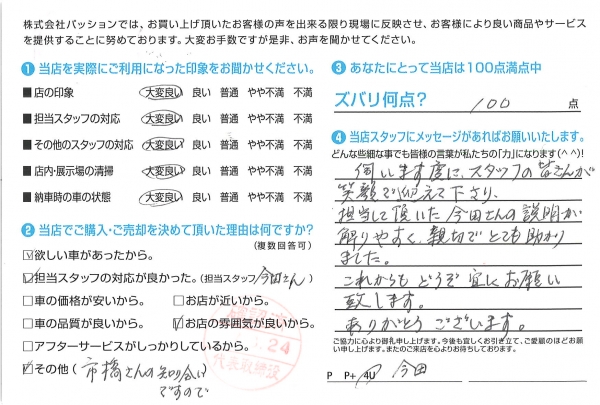 株式会社パッションでは、お買い上げ頂いたお客様の声を出来る限り現場に反映させ、お客様により良い商品やサービス
を提供することに努めております。大変お手数ですが是非、お声を聞かせてください。
❶ 当店を実際にご利用になった印象をお聞かせください。
■店の印象 大変良い 良い 普通 やや不満 不満
■担当スタッフの対応 大変良い 良い 普通 やや不満 不満
■その他のスタッフの対応 大変良い 良い 普通 やや不満 不満
■店内・展示場の清掃 大変良い 良い 普通 やや不満 不満
■納車時の車の状態 大変良い 良い 普通 やや不満 不満
❷ 当店でご購入・ご売却を決めて頂いた理由は何ですか?
(複数回答可)
☑欲しい車があったから。
☑担当スタッフの対応が良かった。(担当スタッフ 今田さん)
□車の価格が安いから。 □お店が近いから。
□車の品質が良いから。 ☑お店の雰囲気が良いから。
□アフターサービスがしっかりしているから。
☑その他( 市橋さんの知り合い
ですので
確認済
24
代表取締役
❸ あなたにとって当店は100点満点中
ズバリ何点? 100 点
❹ 当店スタッフにメッセージがあればお願いいたします。
どんな些細な事でも皆様の言葉が私たちの「力」になります(^^)!
伺います度に、スタッフの皆さんが
笑顔で迎えて下さり、
担当して頂いた今田さんの説明が
解りやすく、親切でとても助かり
ました。
これからも どうぞ宜しくお願い
致します。
ありがとうございます。
ご協力に心より御礼申し上げます。今後も宜しくお引き立て、ご愛顧のほどお願
い申し上げます。またのご来店を心よりお待ちしております。
P P+ 4U 今田